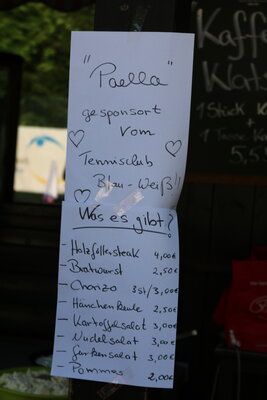 "Paella"
gesponsort
vom
Tennisclub
Blau-Weiß!!
Was es gibt?
- Holzfällersteak 4,00€
- Bratwurst 2,50€
- Chorizo 3St/3,00€
- Hänchenkeule 2,50€
- Kartoffelsalat 3,00€
- Nudelsalat 3,00€
- Gurkensalat 3,00€
- Pommes 2,00€
Kaffe
1 Stück K
+
1 Tasse Ka
5,5